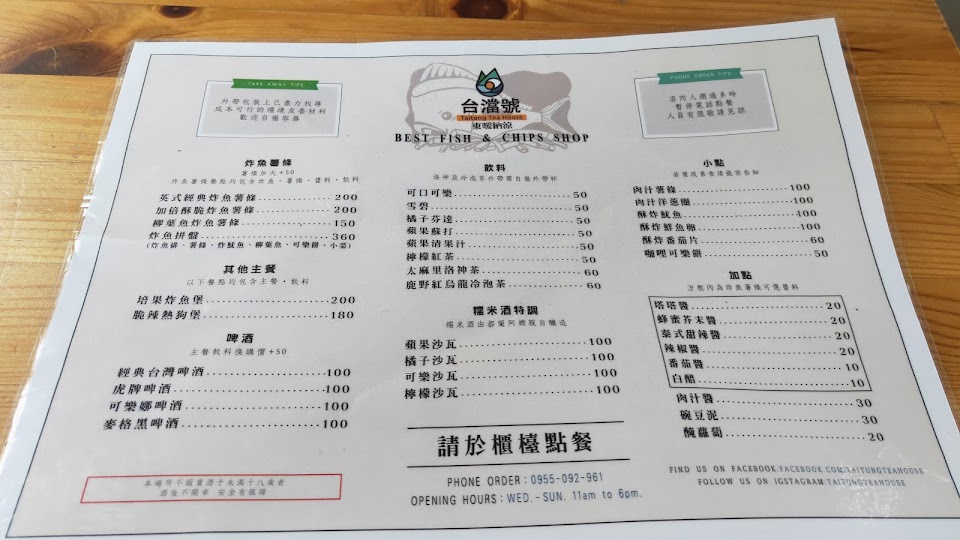 TAKE AWAY TIPS
外帶包裝上已盡力找尋
成本可行的環境友善材料
歡迎自備容器
台灣號
Taitung Tea House
東暖納涼
BEST FISH & CHIPS SHOP
PHONE ORDER TIPS
店內人潮過多時
暫停電話點餐
人員有限敬請見諒
炸魚薯條
薯條加大+50
炸魚薯條餐點均包含炸魚、薯條、醬料、飲料
英式經典炸魚薯條 200
加倍酥脆炸魚薯條 200
柳葉魚炸魚薯條 150
炸魚拼盤 360
(炸魚排、薯條、炸魷魚、柳葉魚、可樂餅、小菜)
其他主餐
以下餐點均包含主餐、飲料
培果炸魚堡 200
脆辣熱狗堡 180
啤酒
主餐飲料換購價+50
經典台灣啤酒 100
虎牌啤酒 100
可樂娜啤酒 100
麥格黑啤酒 100
本場所不販賣酒予未滿十八歲者
酒後不開車 安全有保障
飲料
洛神及冷泡茶外帶需自備外帶杯
可口可樂 50
雪碧 50
橘子芬達 50
蘋果蘇打 50
蘋果清果汁 50
檸檬紅茶 50
太麻里洛神茶 60
鹿野紅烏龍冷泡茶 60
糯米酒特調
糯米酒由都蘭阿嬤親自釀造
蘋果沙瓦 100
橘子沙瓦 100
可樂沙瓦 100
檸檬沙瓦 100
請於櫃檯點餐
PHONE ORDER : 0955-092-961
OPENING HOURS : WED. - SUN. 11am to 6pm.
小點
若需改素食請提前告知
肉汁薯條 100
肉汁洋蔥圈 100
酥炸魷魚 100
酥炸鮮魚卵 100
酥炸番茄片 60
咖哩可樂餅 50
加點
方框內為炸魚薯條可選醬料
塔塔醬 20
蜂蜜芥末醬 20
泰式甜辣醬 20
辣椒醬 20
番茄醬 10
白醋 10
肉汁醬 30
碗豆泥 30
醃蘿蔔 20
FIND US ON FACEBOOK:FACEBOOK.COM/TAITUNGTEAHOUSE
FOLLOW US ON IGSTAGRAM TAITUNGTEAHOUSE